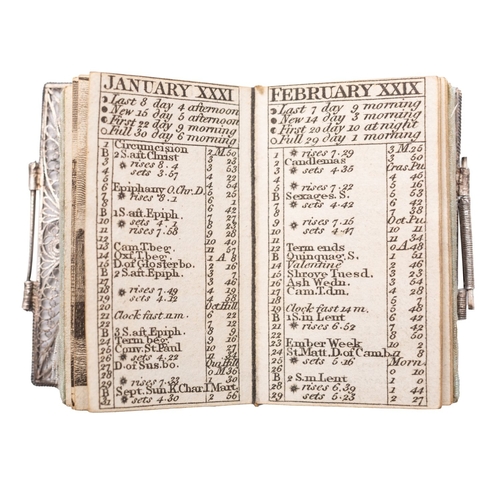 JANUARY XXXI
Last 8 day 4 afternoon
New 15 day 5 afternoon
First 22 day 9 morning
Full 30 day 6 morning
1 Circumcision 2 M.50
B 2 S. aft Christ 3 23
3 rises 8.4 3 53
4 sets 3.57 4 22
5 4 54
6 Epiphany O. Chr. D. 5 25
7 rises 8.1 6 1
B 6 42
9 1 S. aft Epiph. 7 27
10 rises
11 sets 7.58
12 10 40
13 Cam. T. beg. 11 57
14 Oxf. T. beg. 1 A 8
D. of Glosterbo. 2 16
B 2 S. aft Epiph. 3 7
17
18 rises 7.49 4 19
19 sets 4.12 4 58
20 Oct. Hil
21 Clock fast 11 m. 6 22
B 7 12
B 3 S. aft Epiph. 8 29
24 Term beg. 9 16
25 Conv. St. Paul 10 27
26 sets 4.22 11 34
27 D. of Sus. bo. Qui. Hil
28 0 M.36
29 rises 7.33 30
B Sept. Sun. K. Char. I. Mart.
31 sets 4.30 2 56
FEBRUARY XXIX
Last 7 day 9 morning
New 14 day 3 morning
First 20 day 10 at night
Full 29 day 1 morning
1 rises 7.29 3 M.25
2 Candlemas 3 50
3 sets 4.35 Cras. Pu.
4 4 45
5 rises 7.22 5 16
B Sexages. S. 5 53
7 sets 4.42 6 42
8 7 38
9 rises 7.15 Oct. Pu.
10 sets 4.47 10 11
11 11 34
12 Term ends 0 A 48
B Quinquag. S. 1 51
14 Valentine 2 46
15 Shrove Tuesd. 3 23
16 Ash Wedn. 3 54
17 Cam. T. d. m. 4 28
18 5 7
19 Clock fast 14 m. 5 48
B 1 S. in Lent 6 42
21 rises 6.52 7 42
22 8 50
23 Ember Week 10
24 St. Matt. D. of Camb.
25 sets 5.16 Morn.
26 0
27 1 0
B 2 S. in Lent 1 0
28 rises 6.39 1 44
29 sets 5.23 2 27